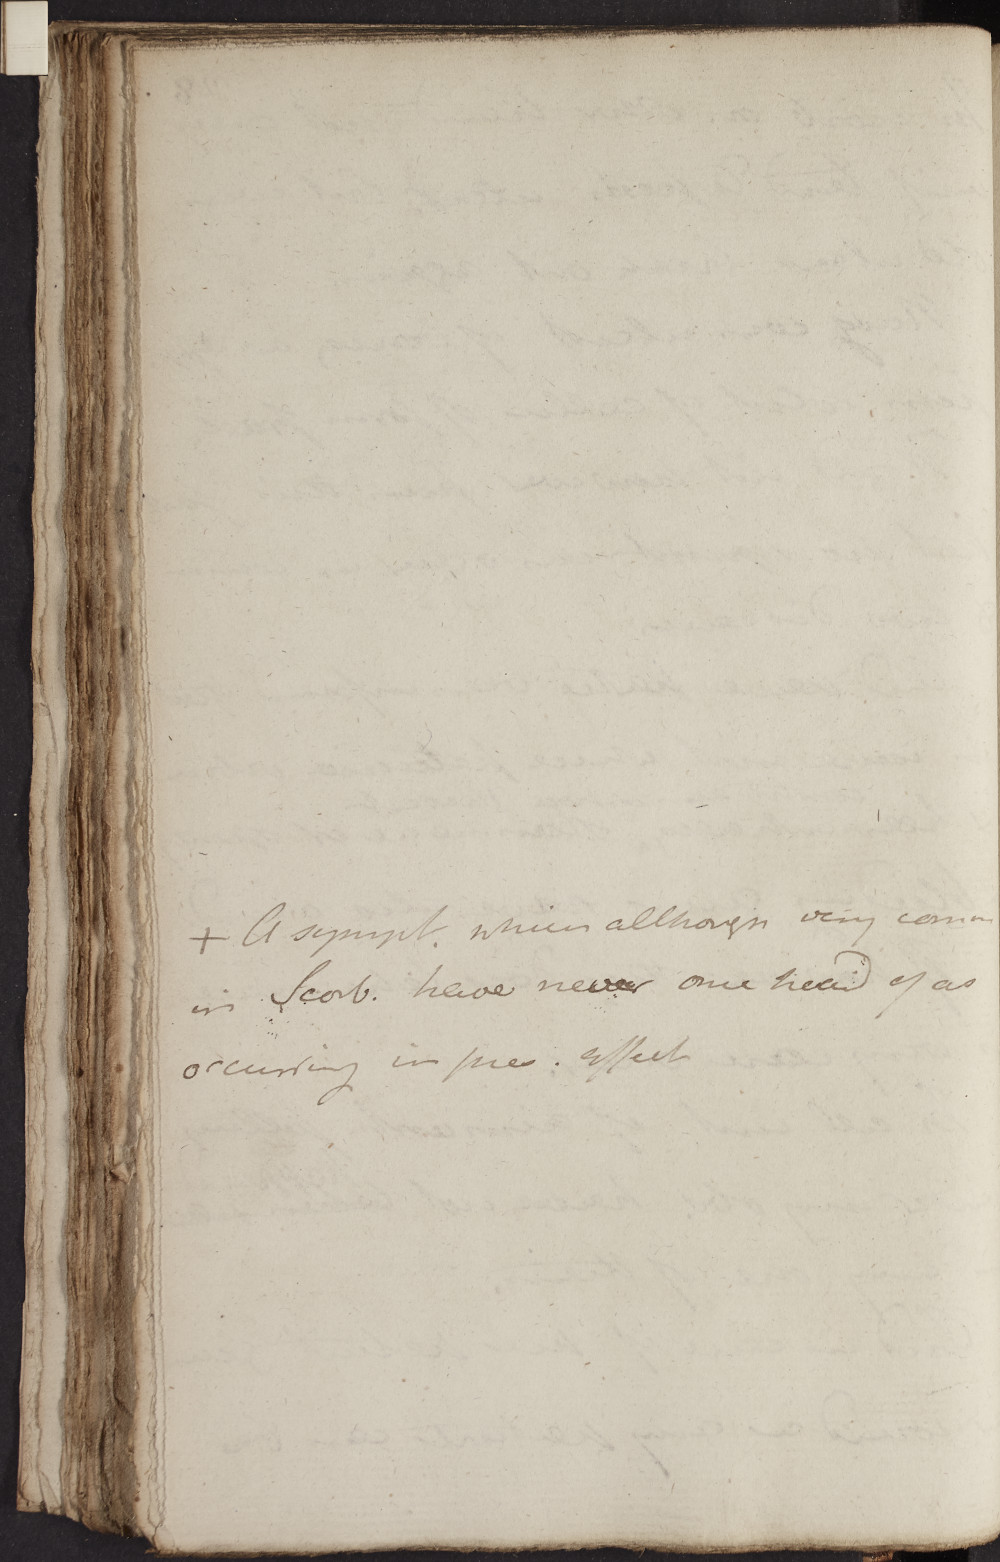 + A sympt. which although very common
in Scorb. have never once heard of as
occurring in pres. effect